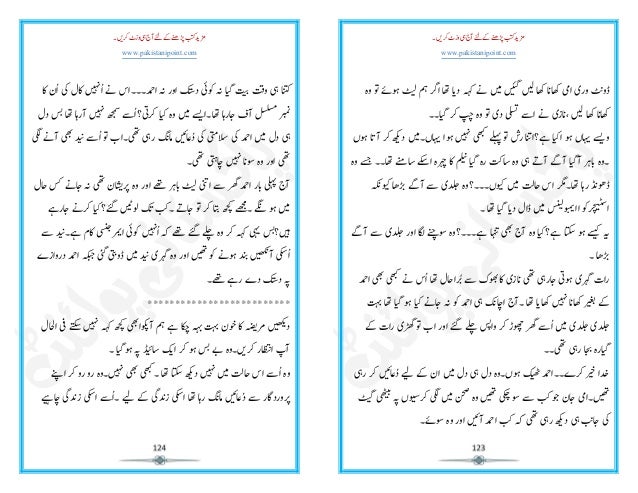 مزید کتب پڑھنے کے لئے آج ہی وزٹ کریں۔
www.pakistanipoint.com
ڈونٹ وری امی کھانا کھا لیں گئیں میں نے کہہ دیا تھا اگر ہم لیٹ ہوئے تو وہ
کھانا کھا لیں نازی، اس نے اسے تسلی دی تو وہ چپ کر گیا۔۔
ویسے یہاں ہوا کیا ہے؟ اتنا رش تو پہلے کبھی نہیں ہوا یہاں۔ میں دیکھ کر آتا ہوں
۔وہ باہر آگیا آگے آتے ہی وہ ساکت رہ گیا نیلم کا چہرہ اسکے سامنے تھا۔ وہ جسے
ڈھونڈ رہا تھا۔ مگر اس حالت میں کیوں۔۔۔؟ وہ جلدی سے آگے بڑھا کیونکہ
اسٹیچر کو ایمبولینس میں ڈال دیا گیا تھا۔
یہ کیسے ہو سکتا ہے؟ کیا وہ آج بھی تنہا ہے۔۔۔؟ وہ سوچنے لگا اور جلدی سے آگے
بڑھا۔
رات گہری ہوتی جارہی تھی نازی کا بھوک سے برا حال تھا اُس نے کبھی بھی احمد
کے بغیر کھانا نہیں کھایا تھا۔ آج اچانک ہی احمد کو نہ جانے کیا ہو گیا تھا بہت
جلدی جلدی میں اُسے گھر چھوڑ کر واپس چلے گئے اور اب تو گھڑی رات کے
گیارہ بجا رہی تھی۔۔
خدا خیر کرے۔۔احمد ٹھیک ہوں۔ وہ دل ہی دل میں ان کے لیے دُعائیں کر رہی
تھیں۔ امی جان جو کب سے سو چکی تھیں وہ صحن میں لگی کرسیوں پہ بیٹھی گیٹ
کی جانب ہی دیکھ رہی تھی کہ کب احمد آئیں اور وہ سوئے۔
123
مزید کتب پڑھنے کے لئے آج ہی وزٹ کریں۔
www.pakistanipoint.com
کتنا ہی وقت بیت گیا نہ کوئی دستک اور نہ احمد۔۔۔۔ اس نے اُنہیں کال کی اُن کا
نمبر مسلسل آف جارہا تھا۔ ایسے میں وہ کیا کرتی؟ اُسے سمجھ نہیں آرہا تھا دل بس
ہی دل میں احمد کی سلامتی کی دُعائیں مانگ رہی تھی۔ اب تو اُسے نیند بھی آنے لگی
تھی اور وہ سونا نہیں چاہتی تھی۔
آج پہلی بار احمد گھر سے اتنی لیٹ باہر تھے اور وہ پریشان تھی نہ جانے کس حال
میں ہو نگے۔ مجھے کچھ بتا کر تو جاتے۔ کب تک لوٹیں گئے؟ کیا کرنے جارہے
ہیں؟ بس یہی کہہ کر وہ چلے گئے تھے کہ اُنہیں کوئی ایمرجنسی کام ہے۔ نید سے
اُسکی آنکھیں بند ہونے کو تھیں اور وہ گہری نید میں ڈوبتی گئی جبکہ احمد دروازے
پہ دستک دے رہے تھے۔
************************
دیکھیں مریضہ کا خون بہت بہہ چکا ہے ہم آپکو ابھی کچھ کہہ نہیں سکتے فی الحال
آپ انتظار کریں۔ وہ بے بس ہو کر ایک سائیڈ پہ ہو گیا۔
وہ اُسے اس حالت میں نہیں دیکھ سکتا تھا۔ کبھی بھی نہیں۔ وہ رو رو کر اپنے
پروردگار سے دُعائیں مانگ رہا تھا اسکی زندگی کے لیے۔ اُسے اسکی زندگی چاہیے
124